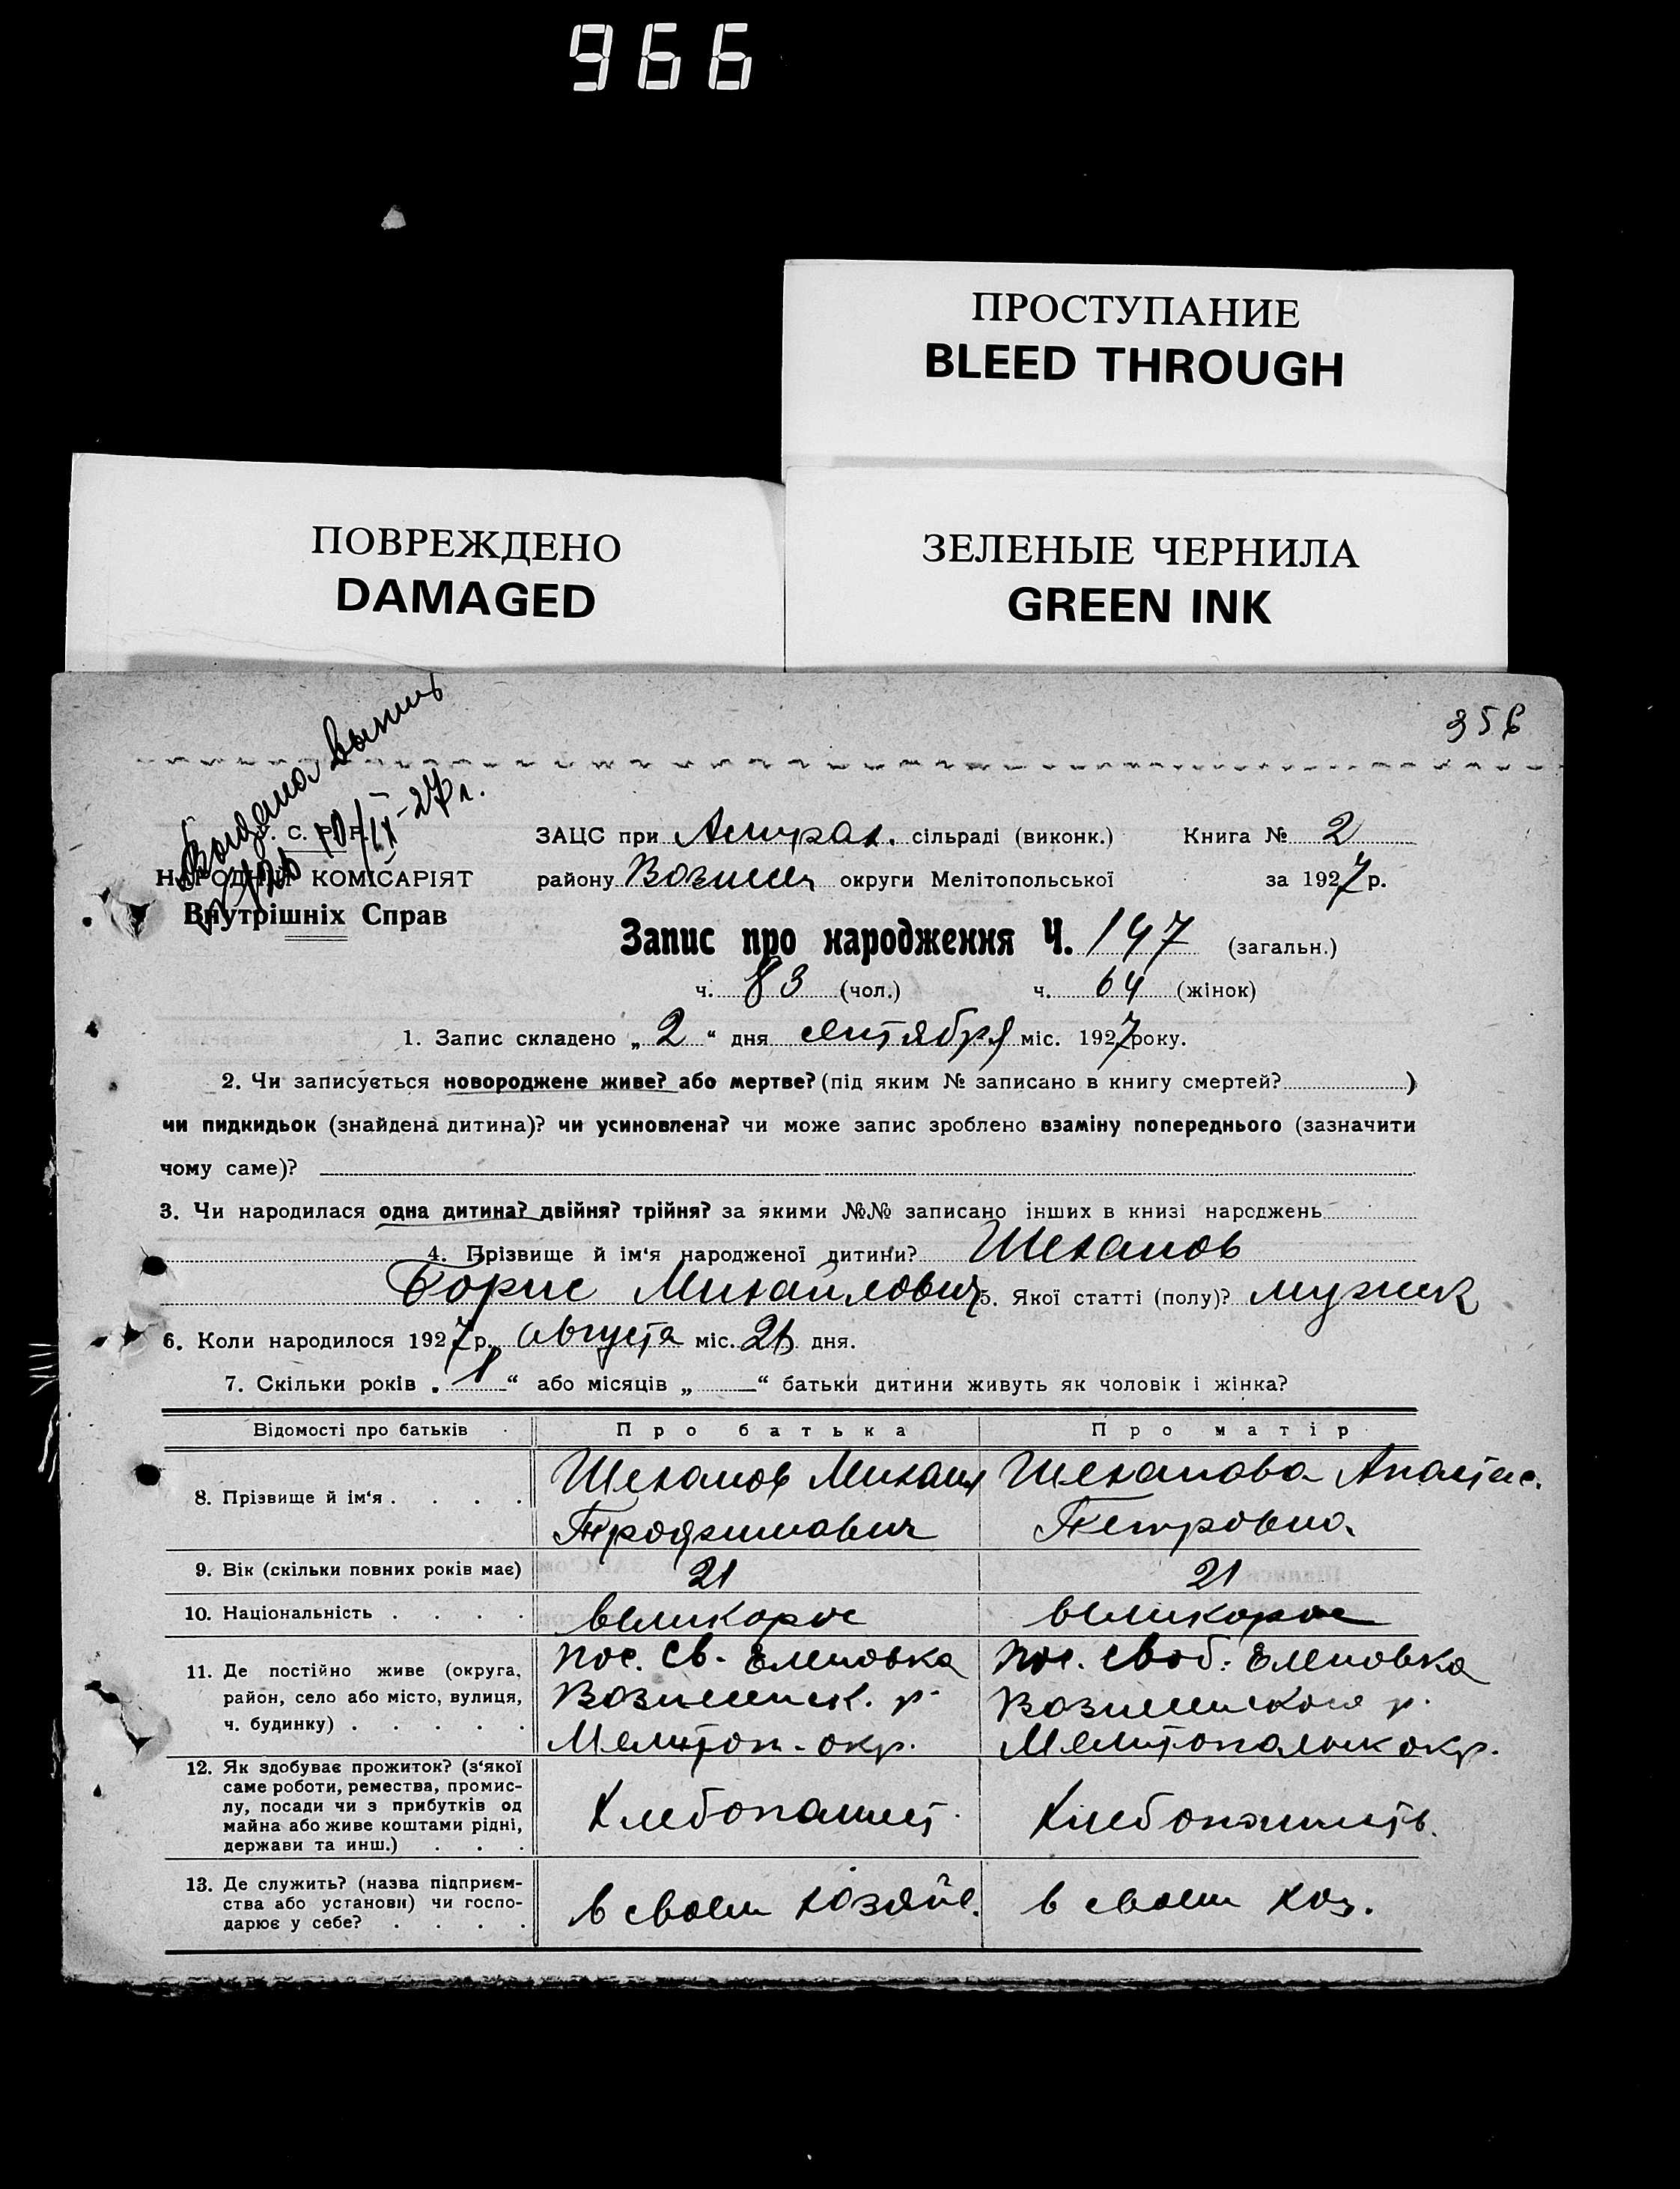 966
ПРОСТУПАНИЕ
BLEED THROUGH
ПОВРЕЖДЕНО
DAMAGED
ЗЕЛЕНЫЕ ЧЕРНИЛА
GREEN INK
356
10/IX-27 г.
С. Р. Р.
НАРОДНІЙ КОМІСАРІЯТ
Внутрішніх Справ
ЗАЦС при сільраді (виконк.) Книга № 2
району Вознесен округи Мелітопольської за 1927 р.
Запис про народження Ч. 147 (загальн.)
ч. 83 (чол.) ч. 64 (жінок)
1. Запис складено „ 2 “ дня сентября міс. 1927 року.
2. Чи записується новороджене живе? або мертве? (під яким № записано в книгу смертей? )
чи пидкидьок (знайдена дитина)? чи усиновлена? чи може запис зроблено взаміну попереднього (зазначити
чому саме)?
3. Чи народилася одна дитина? двійня? трійня? за якими №№ записано інших в книзі народжень
4. Прізвище й ім‘я народженої дитини? Шеханов
Борис Михайлович 5. Якої статті (полу)? мужск
6. Коли народилося 1927 р. августа міс. 26 дня.
7. Скільки років „ 1 “ або місяців „ “ батьки дитини живуть як чоловік і жінка?
Відомості про батьків Про батька Про матір
8. Прізвище й ім‘я . . . . Шеханов Михаил Шеханова Анастас.
Трофимович Петровна
9. Вік (скільки повних років має) 21 21
10. Національність . . . . великорос великорос
11. Де постійно живе (округа, пос. Св. Еленовка пос. Своб. Еленовка
район, село або місто, вулиця, Вознесенск. р. Вознесенского р.
ч. будинку) . . . . . Мелитоп. окр. Мелитопольск окр.
12. Як здобуває прожиток? (з‘якої
саме роботи, ремества, промис-
лу, посади чи з прибутків од
майна або живе коштами рідні, Хлебопашест. Хлебопашеств.
держави та инш.) . . .
13. Де служить? (назва підприєм-
ства або установи) чи госпо- в своем хозяйс. в своем хоз.
дарює у себе? . . . .